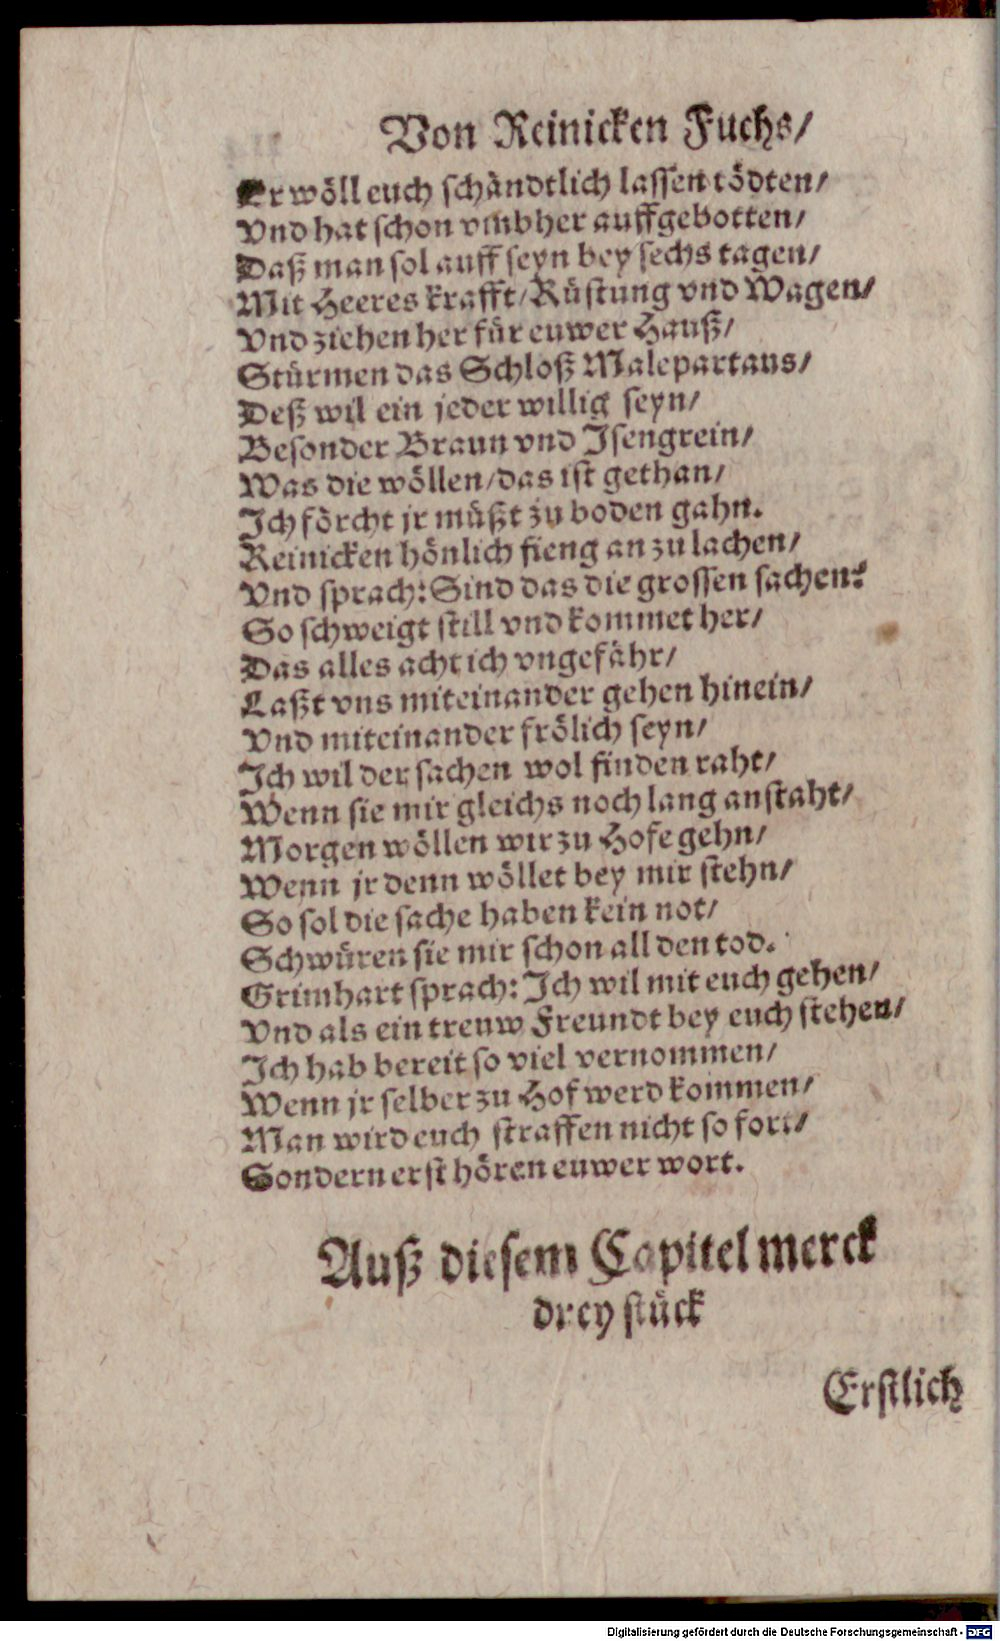 Von Reinicken Fuchs/
Er wöll euch schändtlich lassen tödten/
Vnd hat schon vmbher auffgebotten/
Daß man sol auff seyn bey sechs tagen/
Mit Heeres krafft/Rüstung vnd Wagen/
Vnd ziehen her für euwer Hauß/
Stürmen das Schloß Malepartaus/
Deß wil ein jeder willig seyn/
Besonder Braun vnd Isengrein/
Was die wöllen/das ist gethan/
Ich förcht jr müßt zu boden gahn.
Reinicken hönlich fieng an zu lachen/
Vnd sprach: Sind das die grossen sachen?
So schweigt still vnd kommet her/
Das alles acht ich vngefähr/
Laßt vns miteinander gehen hinein/
Vnd miteinander frölich seyn/
Ich wil der sachen wol finden raht/
Wenn sie mir gleichs noch lang anstaht/
Morgen wöllen wir zu Hofe gehn/
Wenn jr denn wöllet bey mir stehn/
So sol die sache haben kein not/
Schwüren sie mir schon all den tod.
Grimhart sprach: Ich wil mit euch gehen/
Vnd als ein treuw Freundt bey euch stehen/
Ich hab bereit so viel vernommen/
Wenn jr selber zu Hof werd kommen/
Man wird euch straffen nicht so fort/
Sondern erst hören euwer wort.
Auß diesem Capitel merck
drey stück
Erstlich
Digitalisierung gefördert durch die Deutsche Forschungsgemeinschaft - DFG